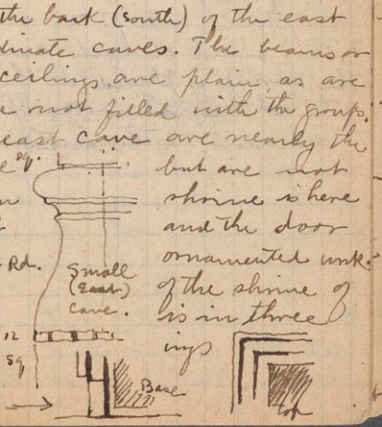 the back (South) of the east
dinate caves. The beams or
ceilings are plain, as are
not filled with the groups.
east cave are nearly the
sq. but are not
shrine is here
and the door
Rd. ornamented work.
Small
(East)
cave.
of the shrine of
is in three
ings
12
sq
Base
top